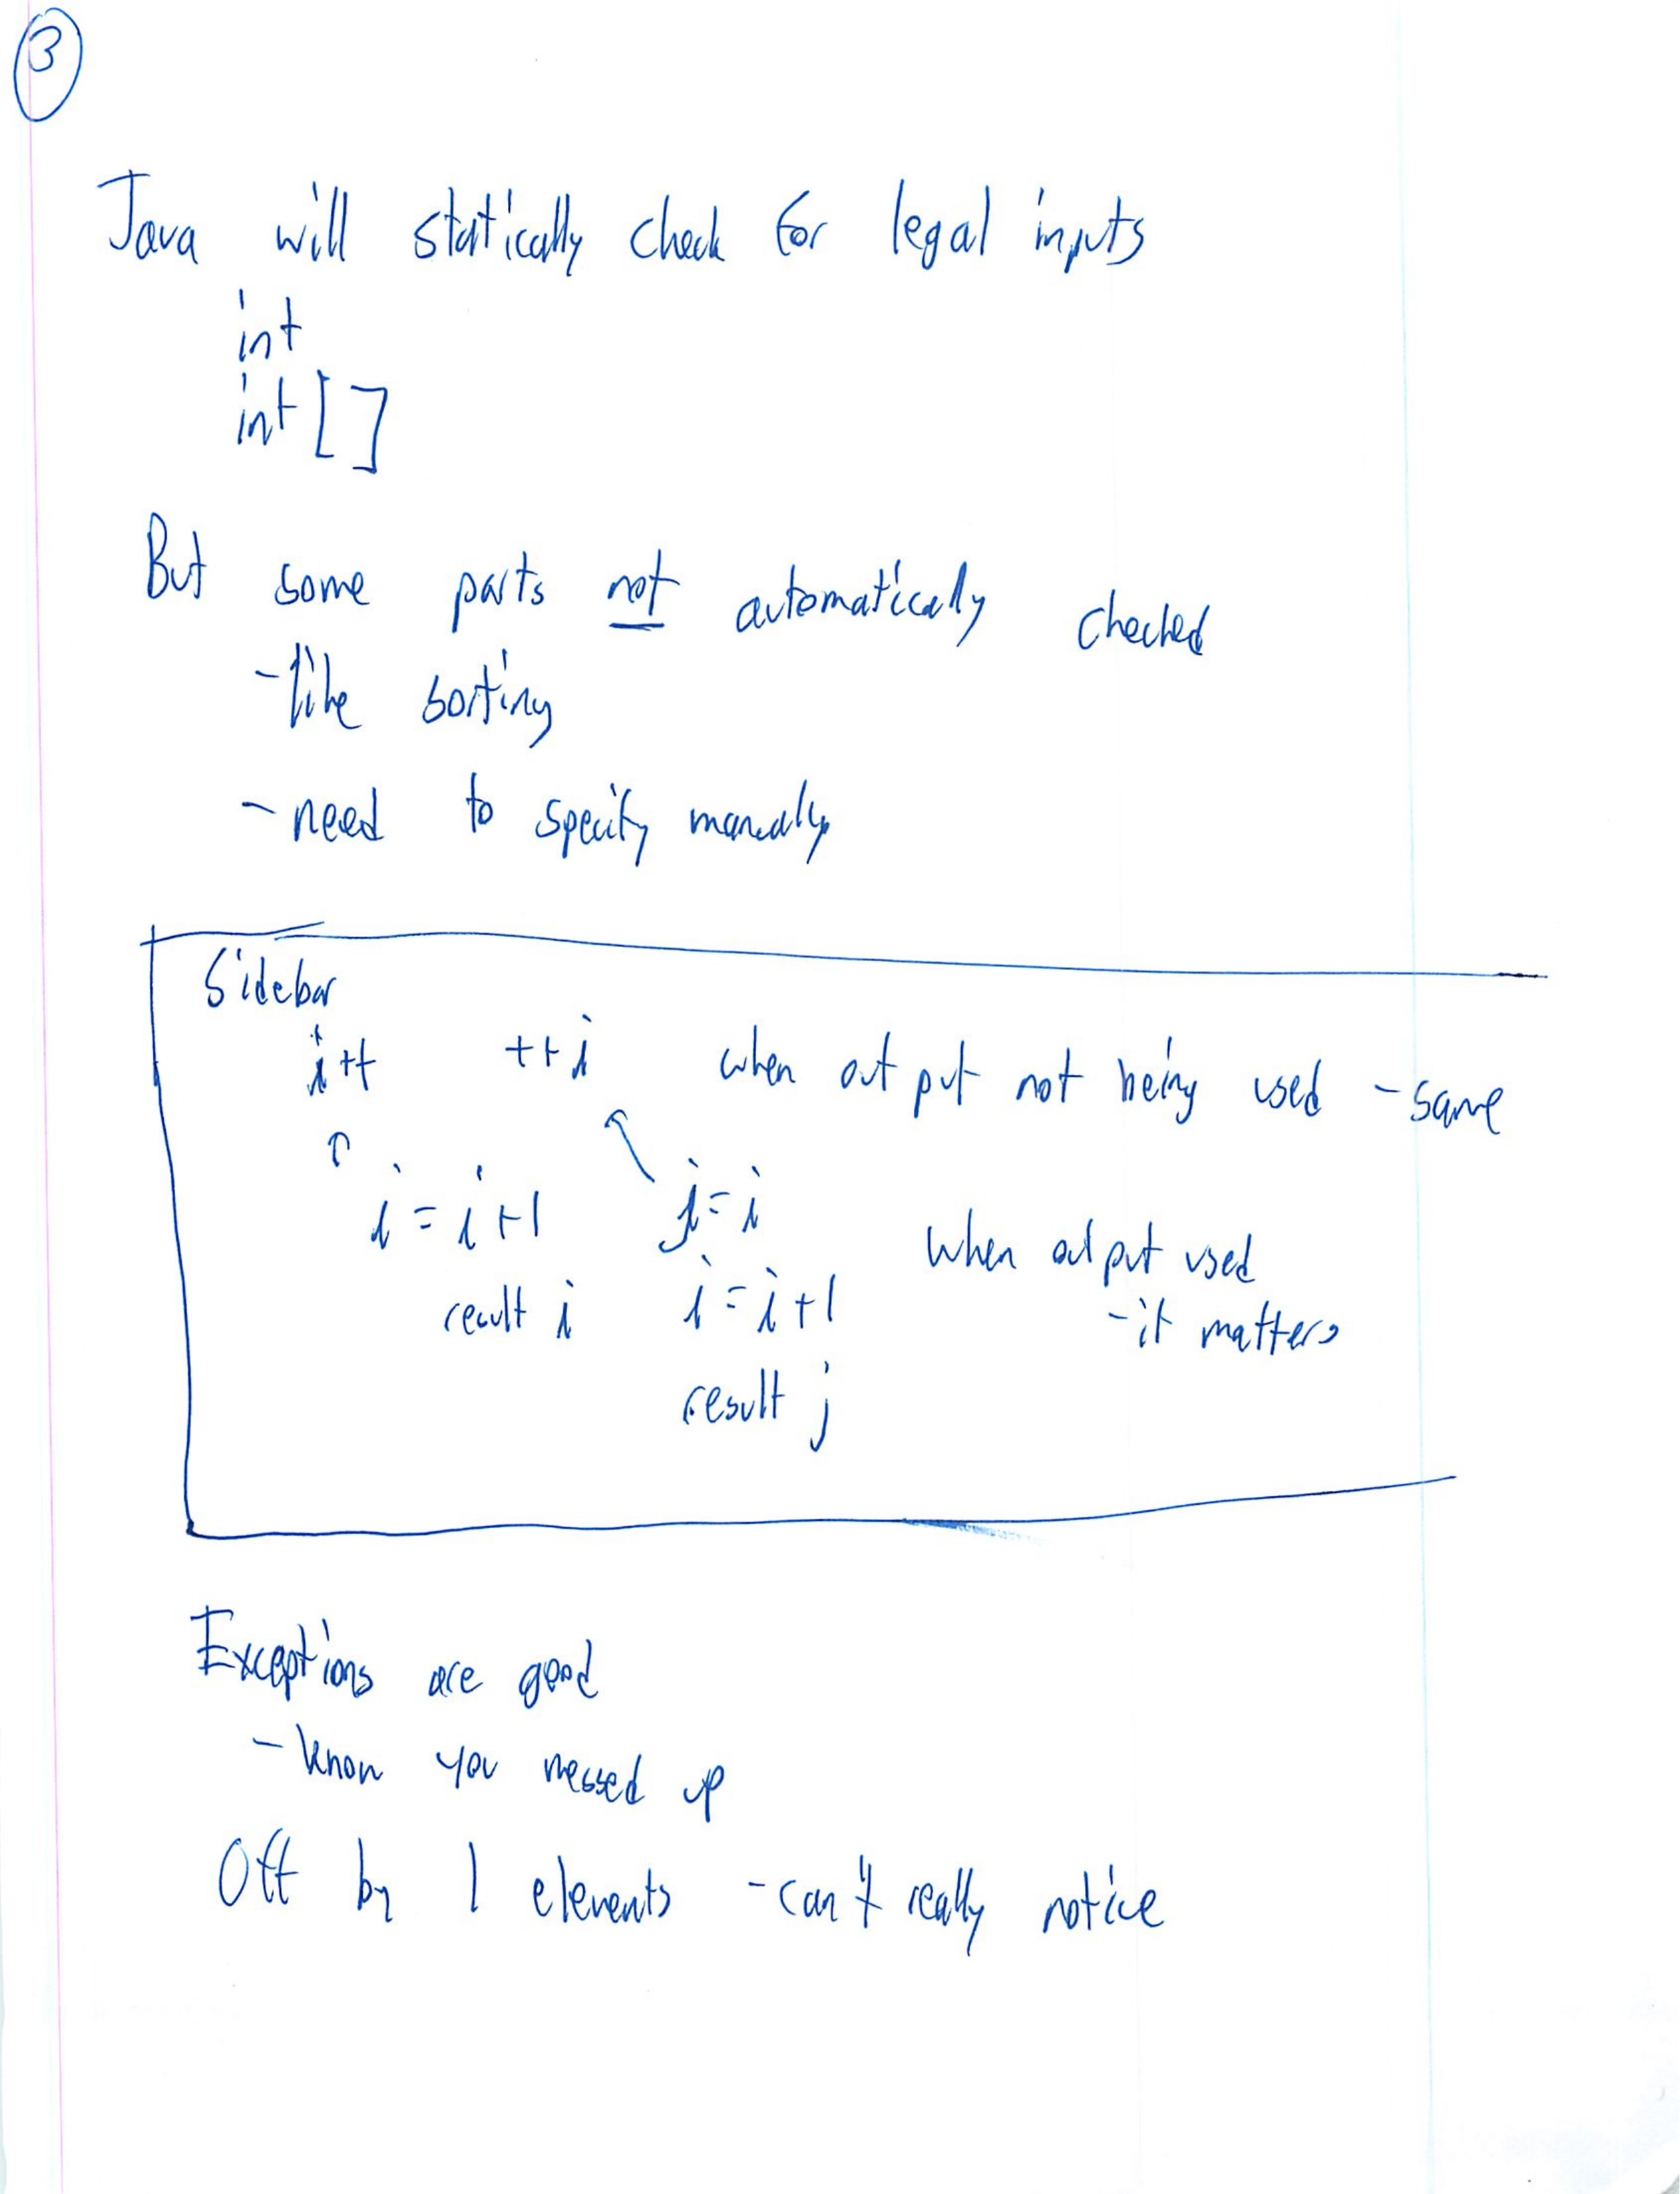 3
Java will statically check for legal inputs
int
int []
But some parts not automatically checked
- like sorting
- need to specify manually
Sidebar
i++ ++i when output not being used - same
i = i+1 j = i when output used
result i i = i+1 - it matters
result j
Exceptions are good
- know you messed up
Off by 1 elements - can't really notice